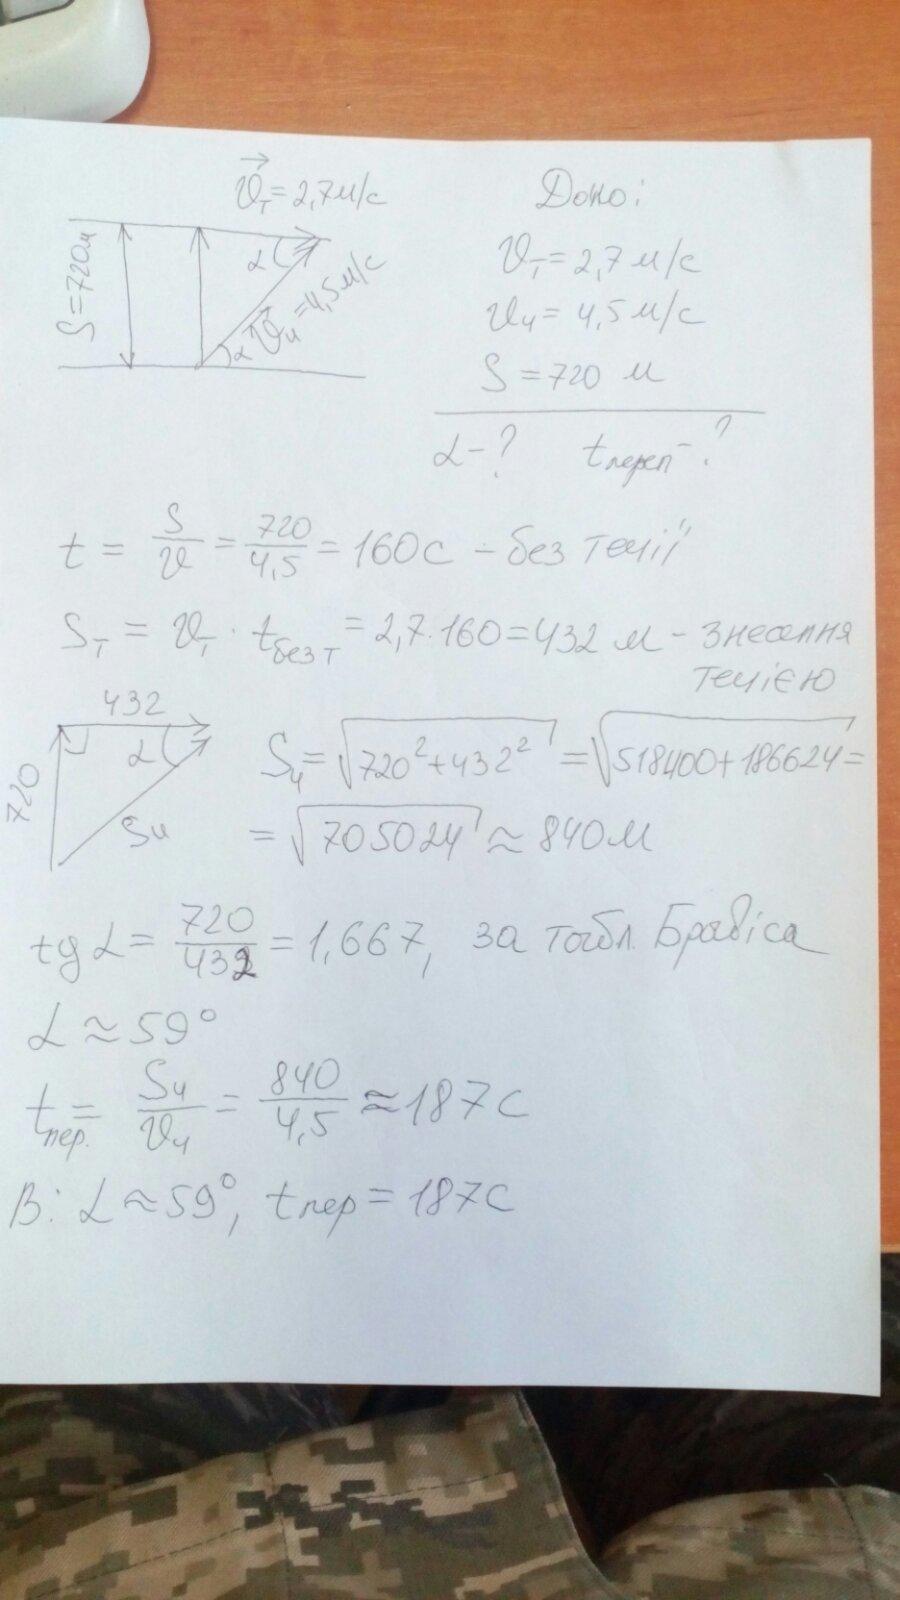 v⃗т = 2,7 м/с
S = 720 м
α
α
v⃗ч = 4,5 м/с
Дано:
vт = 2,7 м/с
vч = 4,5 м/с
S = 720 м
α - ? tпереп - ?
t = S/v = 720/4,5 = 160 с - без течії
Sт = vт · tбез т = 2,7 · 160 = 432 м - знесення
течією
432
720
α
Sч
Sч = √(720² + 432²) = √(518400 + 186624) =
= √705024 ≈ 840 м
tg α = 720/432 = 1,667, за табл. Брадіса
α ≈ 59°
tпер. = Sч/vч = 840/4,5 ≈ 187 с
В: α ≈ 59°, tпер = 187 с